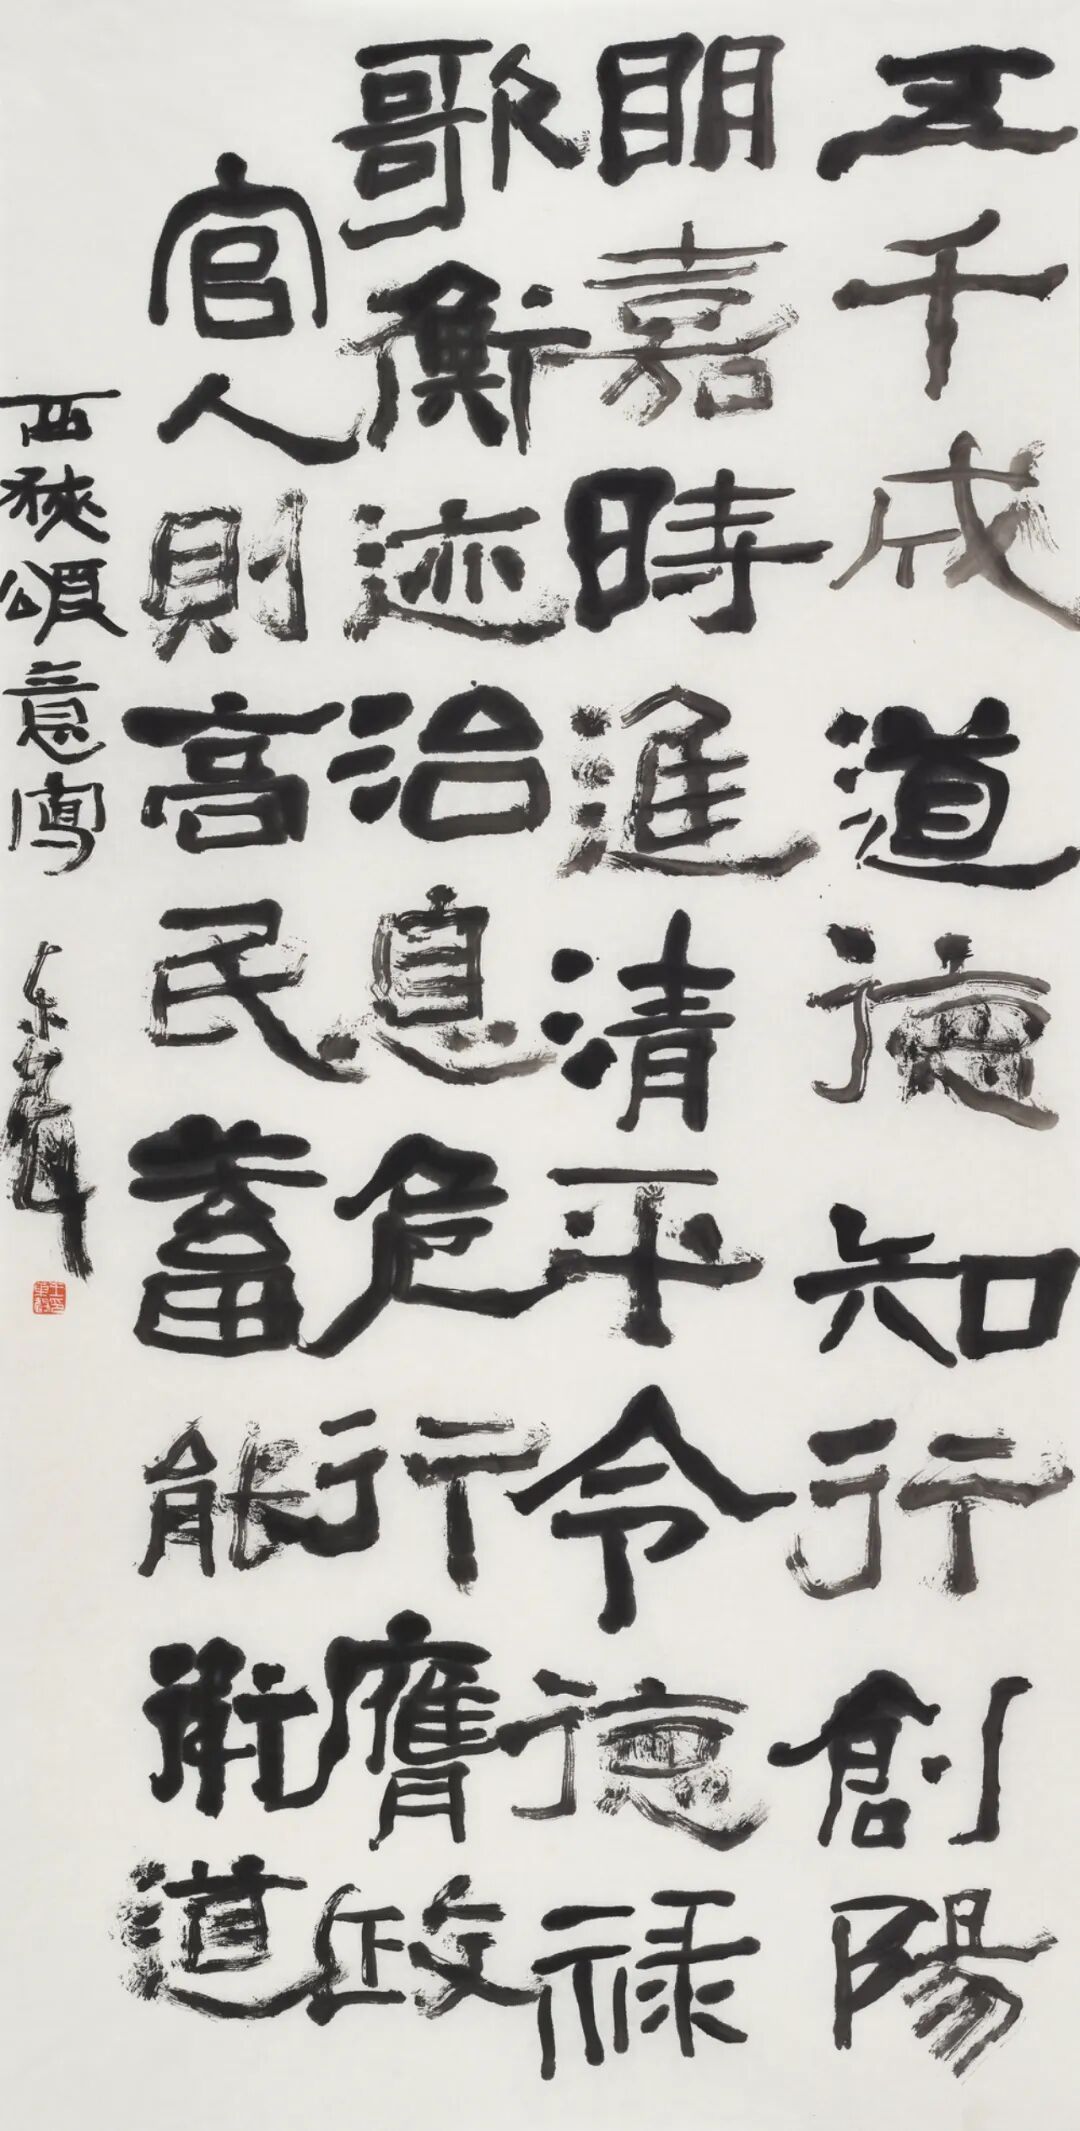 五千成道德知行創陽
明嘉時進清平令德禄
歌衡迹治息危行膺政
官人則高民蓄能術道
西狹頌意寫